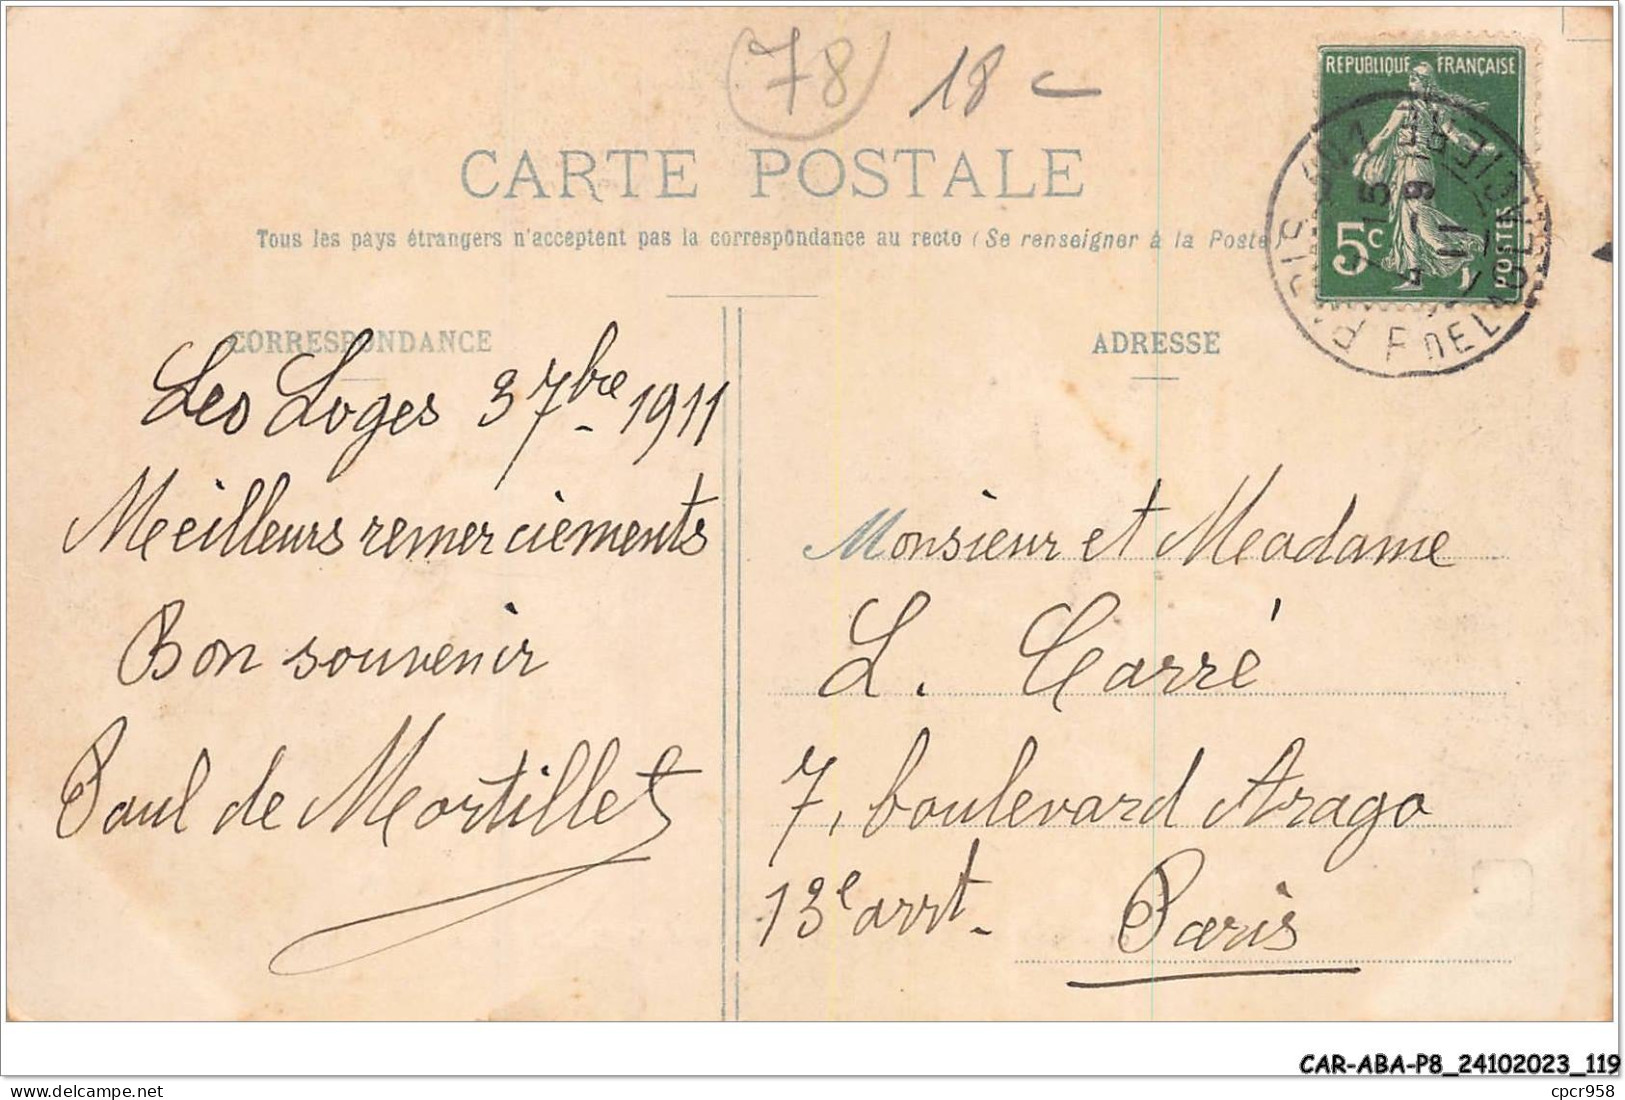 78 18
RÉPUBLIQUE FRANÇAISE
5c
POSTES
CARTE POSTALE
Tous les pays étrangers n'acceptent pas la correspondance au recto (Se renseigner à la Poste)
CORRESPONDANCE
ADRESSE
Les Loges 3 7bre 1911
Meilleurs remerciements
Bon souvenir
Paul de Mortillet
Monsieur et Madame
L. Carré
7, boulevard Arago
13e arrt.
Paris
CAR-ABA-P8_24102023_119
cpcr958